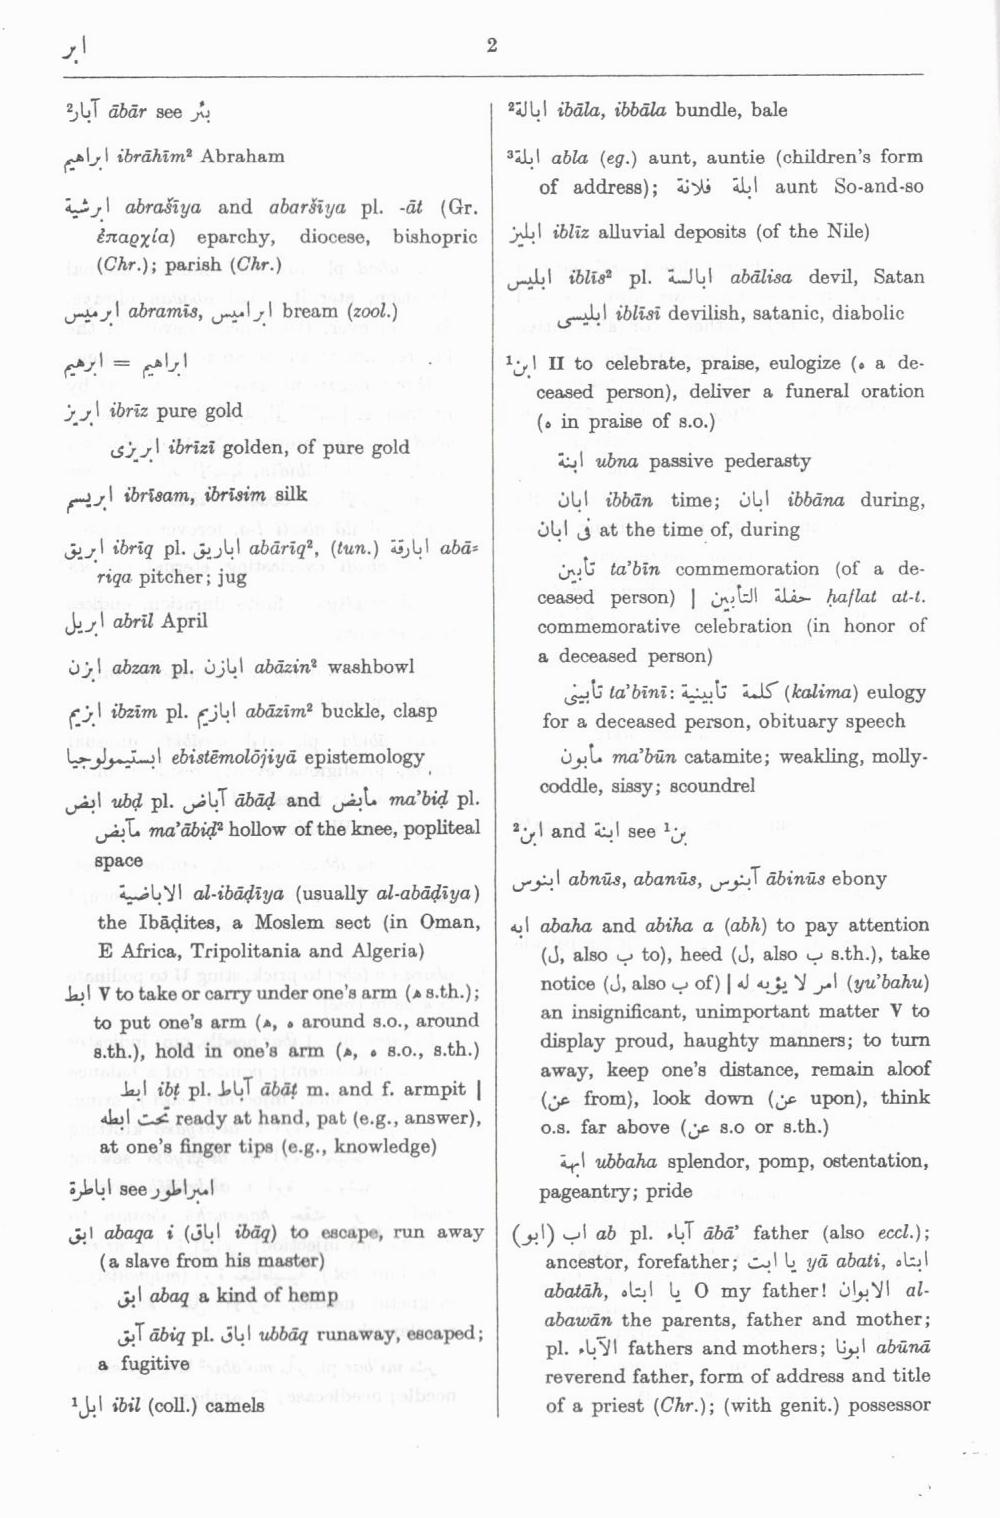 ابر
2
آبار² ābār see بئر
ابراهيم ibrāhīm² Abraham
ابرشية abrašīya and abaršīya pl. -āt (Gr.
ἐπαρχία) eparchy, diocese, bishopric
(Chr.); parish (Chr.)
ابرميس abramīs, ابراميس bream (zool.)
ابرهيم = ابراهيم
ابريز ibrīz pure gold
ابريزى ibrīzī golden, of pure gold
ابريسم ibrīsam, ibrīsim silk
ابريق ibrīq pl. اباريق abārīq², (tun.) ابارقة abā=
riqa pitcher; jug
ابريل abrīl April
ابزن abzan pl. ابازن abāzin² washbowl
ابزيم ibzīm pl. ابازيم abāzīm² buckle, clasp
ابستيمولوجيا ebistēmolōjiyā epistemology
ابض ubḍ pl. آباض ābāḍ and مأبض ma'biḍ pl.
مآبض ma'ābiḍ² hollow of the knee, popliteal
space
الاباضية al-ibāḍīya (usually al-abāḍīya)
the Ibāḍites, a Moslem sect (in Oman,
E Africa, Tripolitania and Algeria)
ابط V to take or carry under one's arm (ه s.th.);
to put one's arm (ه, ه around s.o., around
s.th.), hold in one's arm (ه, ه s.o., s.th.)
ابط ibṭ pl. آباط ābāṭ m. and f. armpit |
تحت ابطه ready at hand, pat (e.g., answer),
at one's finger tips (e.g., knowledge)
اباطرة see امبراطور
ابق abaqa i (اباق ibāq) to escape, run away
(a slave from his master)
ابق abaq a kind of hemp
آبق ābiq pl. اباق ubbāq runaway, escaped;
a fugitive
ابل¹ ibil (coll.) camels
ابالة² ibāla, ibbāla bundle, bale
ابلة³ abla (eg.) aunt, auntie (children's form
of address); ابلة فلانة aunt So-and-so
ابليز iblīz alluvial deposits (of the Nile)
ابليس iblīs² pl. ابالسة abālisa devil, Satan
ابليسى iblīsī devilish, satanic, diabolic
ابن¹ II to celebrate, praise, eulogize (ه a de-
ceased person), deliver a funeral oration
(ه in praise of s.o.)
ابنة ubna passive pederasty
ابان ibbān time; ابان ibbāna during,
فى ابان at the time of, during
تأبين ta'bīn commemoration (of a de-
ceased person) | حفلة التأبين ḥaflat at-t.
commemorative celebration (in honor of
a deceased person)
تأبينى ta'bīnī: كلمة تأبينية (kalima) eulogy
for a deceased person, obituary speech
مأبون ma'būn catamite; weakling, molly-
coddle, sissy; scoundrel
ابن² and ابنة see بن¹
ابنوس abnūs, abanūs, آبنوس ābinūs ebony
ابه abaha and abiha a (abh) to pay attention
(ل, also ب to), heed (ل, also ب s.th.), take
notice (ل, also ب of) | امر لا يؤبه له (yu'bahu)
an insignificant, unimportant matter V to
display proud, haughty manners; to turn
away, keep one's distance, remain aloof
(عن from), look down (عن upon), think
o.s. far above (عن s.o or s.th.)
ابهة ubbaha splendor, pomp, ostentation,
pageantry; pride
(ابو) اب ab pl. آباء ābā' father (also eccl.);
ancestor, forefather; يا ابت yā abati, ابتاه
abatāh, يا ابتاه O my father! الابوان al-
abawān the parents, father and mother;
pl. الآباء fathers and mothers; ابونا abūnā
reverend father, form of address and title
of a priest (Chr.); (with genit.) possessor